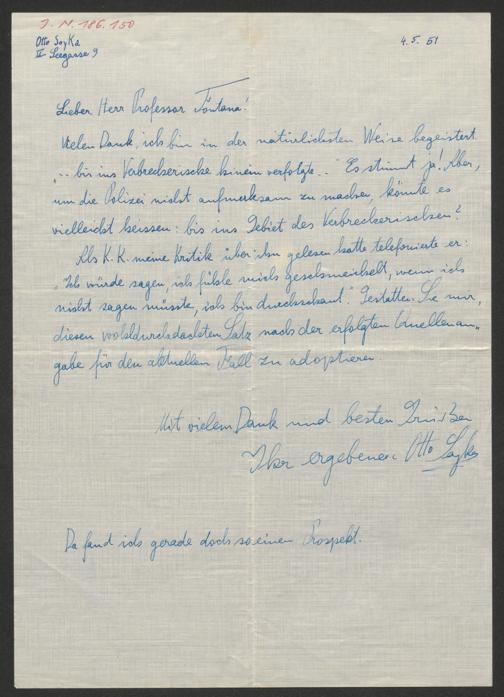 J. N. 186.150
Otto Soyka
IX Seegasse 9
4. 5. 51
Lieber Herr Professor Fontana!
Vielen Dank, ich bin in der natürlichsten Weise begeistert
"... bis ins Verbrecherische hinein verfolgte..." Es stimmt ja! Aber,
um die Polizei nicht aufmerksam zu machen, könnte es
vielleicht heissen: bis ins Gebiet des Verbrecherischen?
Als K. K. meine Kritik über ihn gelesen hatte telefonierte er:
"Ich würde sagen, ich fühle mich geschmeichelt, wenn ich
nicht sagen müsste, ich bin durchschaut." Gestatten Sie mir,
diesen wohldurchdachten Satz nach der erfolgten Quellenan-
gabe für den aktuellen Fall zu adoptieren.
Mit vielem Dank und besten Grüßen
Ihr ergebener Otto Soyka
Da fand ich gerade doch so einen Prospekt.